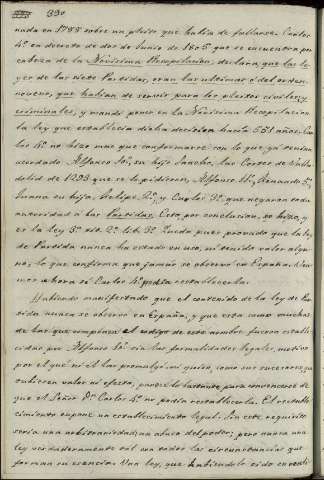 330
nada en 1788 sobre un pleito que había de fallarse. Carlos
4º en decreto de dos de Junio de 1805 que se encuentra por
cabeza de la Novísima Recopilacion, declara que las le-
yes de las siete Partidas, eran las ultimas ó del orden
que habian de servir para los pleitos civiles y
criminales, y mandó poner en la Novísima Recopilacion
la ley que establecia dicha decision hacía 551 años. Car-
los 4º no hizo mas que conformarse con lo que ya tenian
acordado Alfonso 10º, su hijo Sancho, las Cortes de Valla-
dolid de 1293 que se lo pidieron, Alfonso 11º, Fernando 5º,
Juana su hija, Felipe 2º, y Carlos 3º, que negaron toda
autoridad á las Partidas. Esto, por conclusion, se hizo, y
es la ley 3ª tit. 2º lib. 3º Queda pues probado que la ley
de Partida nunca ha estado en uso, ni tenido valor algu-
no, lo que confirma que jamás se observó en España. Vea-
mos ahora si Carlos 4º podia restablecerla.
Habiendo manifestado que el contenido de la ley de Par-
tida nunca se observó en España, y que esta como muchas
de las que componen el código de este nombre, fueron estable-
cidas por Alfonso 10º sin las formalidades legales, motivo
por el que ni él las promulgó, ni quiso, como sus sucesores, que
tubieren valor ni efecto, parece lo bastante para convencerse de
que el Señor Dn Carlos 4º no podía restablecerla. El restable-
cimiento supone un establecimiento legal. Sin este requisito
seria una arbitrariedad, un abuso del poder; pero nunca una
ley verdaderamente tal con todas las circunstancias que
forman su esencia. Una ley, que habiendolo sido en reali-